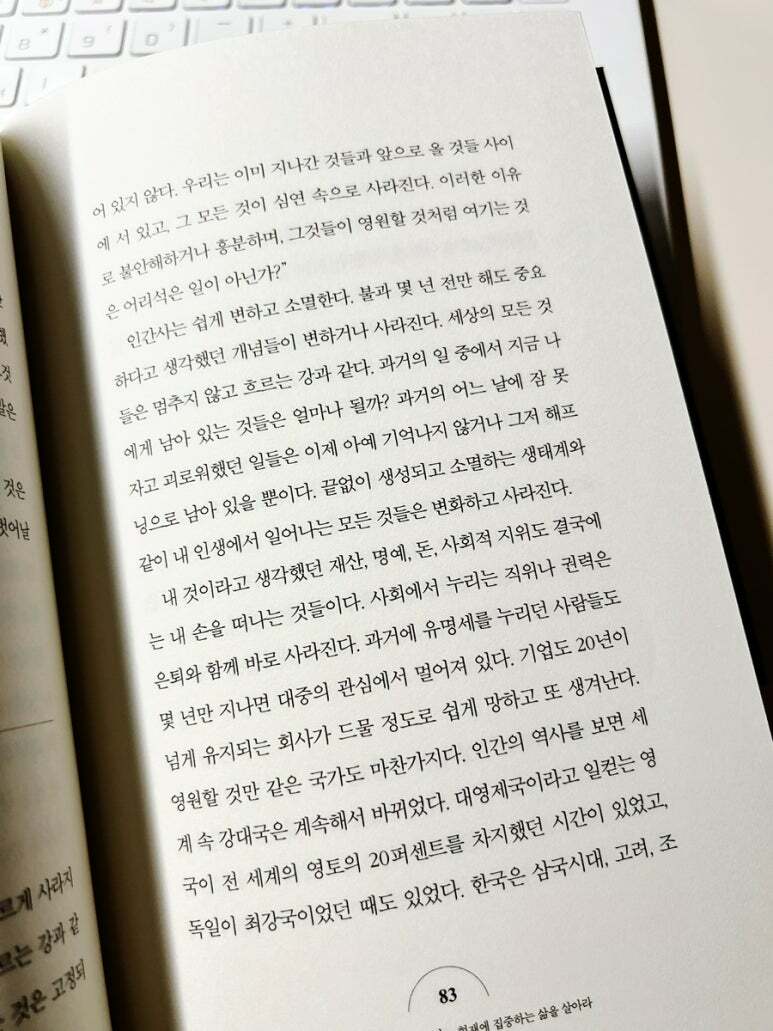 8
9
0
어 있지 않다. 우리는 이미 지나간 것들과 앞으로 올 것들 사이
에 서 있고, 그 모든 것이 심연 속으로 사라진다. 이러한 이유
로 불안해하거나 흥분하며, 그것들이 영원할 것처럼 여기는 것
은 어리석은 일이 아닌가?”
인간사는 쉽게 변하고 소멸한다. 불과 몇 년 전만 해도 중요
하다고 생각했던 개념들이 변하거나 사라진다. 세상의 모든 것
들은 멈추지 않고 흐르는 강과 같다. 과거의 일 중에서 지금 나
에게 남아 있는 것들은 얼마나 될까? 과거의 어느 날에 잠 못
자고 괴로워했던 일들은 이제 아예 기억나지 않거나 그저 해프
닝으로 남아 있을 뿐이다. 끝없이 생성되고 소멸하는 생태계와
같이 내 인생에서 일어나는 모든 것들은 변화하고 사라진다.
내 것이라고 생각했던 재산, 명예, 돈, 사회적 지위도 결국에
는 내 손을 떠나는 것들이다. 사회에서 누리는 직위나 권력은
은퇴와 함께 바로 사라진다. 과거에 유명세를 누리던 사람들도
몇 년만 지나면 대중의 관심에서 멀어져 있다. 기업도 20년이
넘게 유지되는 회사가 드물 정도로 쉽게 망하고 또 생겨난다.
영원할 것만 같은 국가도 마찬가지다. 인간의 역사를 보면 세
계 속 강대국은 계속해서 바뀌었다. 대영제국이라고 일컫는 영
국이 전 세계의 영토의 20퍼센트를 차지했던 시간이 있었고,
독일이 최강국이었던 때도 있었다. 한국은 삼국시대, 고려, 조
83
현재에 집중하는 삶을 살아라
것은
벗어날
르게 사라지
르는 강과 같
것은 고정되